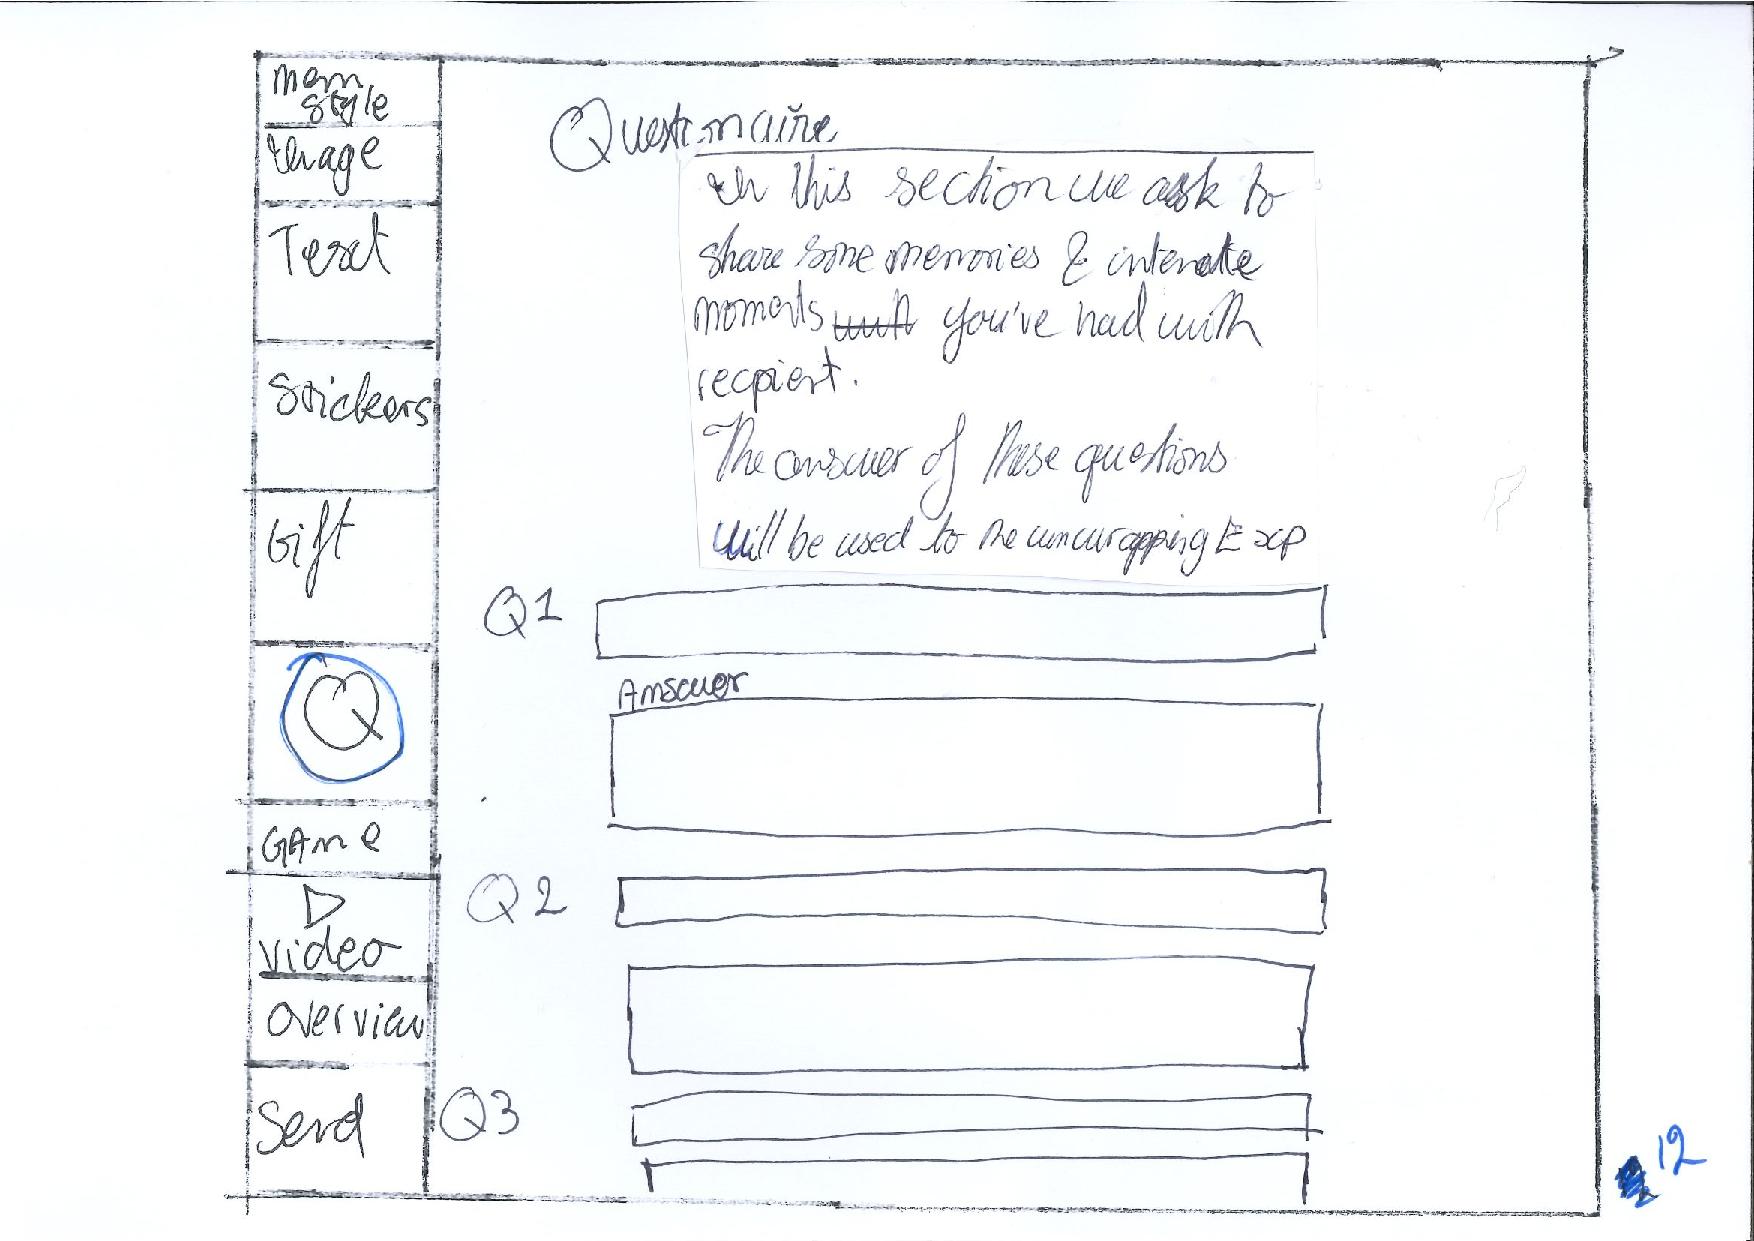 mem
style
image
Text
Stickers
Gift
Q
GAme
video
overview
Send
Questionnaire
In this section we ask to
share some memories & intemate
moments with you've had with
recpient.
The answer of these questions
will be used to the unwrapping Exp
Q1
Answer
Q2
Q3
12